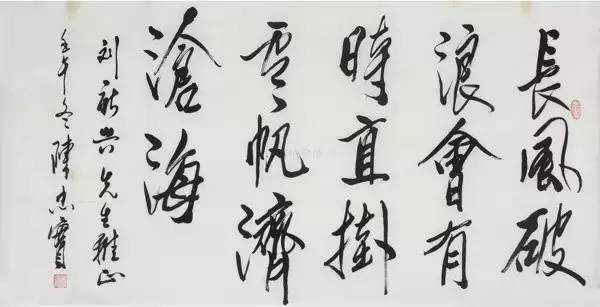 長風破
浪會有
時直掛
雲帆濟
滄海
刘新先生雅正
壬午冬陳忠實